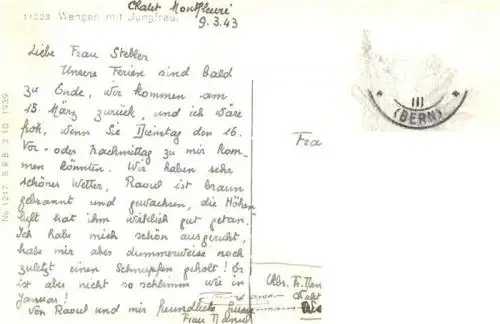 Chalet Montfleuri
11223 Wengen mit Jungfrau.
9.3.43
Liebe Frau Stebler
Unsere Ferien sind bald
zu Ende, wir kommen am
15. März zurück, und ich wäre
froh, wenn Sie Dienstag den 16.
Vor- oder Nachmittag zu mir kom-
men könnten. Wir haben sehr
schönes Wetter, Raoul ist braun
gebrannt und gewachsen, die Höhen
luft hat ihm wirklich gut getan.
Ich habe mich schön ausgeruht,
habe mir aber dummerweise noch
zuletzt einen Schnupfen geholt! Er
ist aber nicht so schlimm wie in
Januar!
Von Raoul und mir freundliche Grüsse
Frau
No 1247 B R B 3 10 1939
III
(BERN)
Fra
Abs. Fr.
Chalet